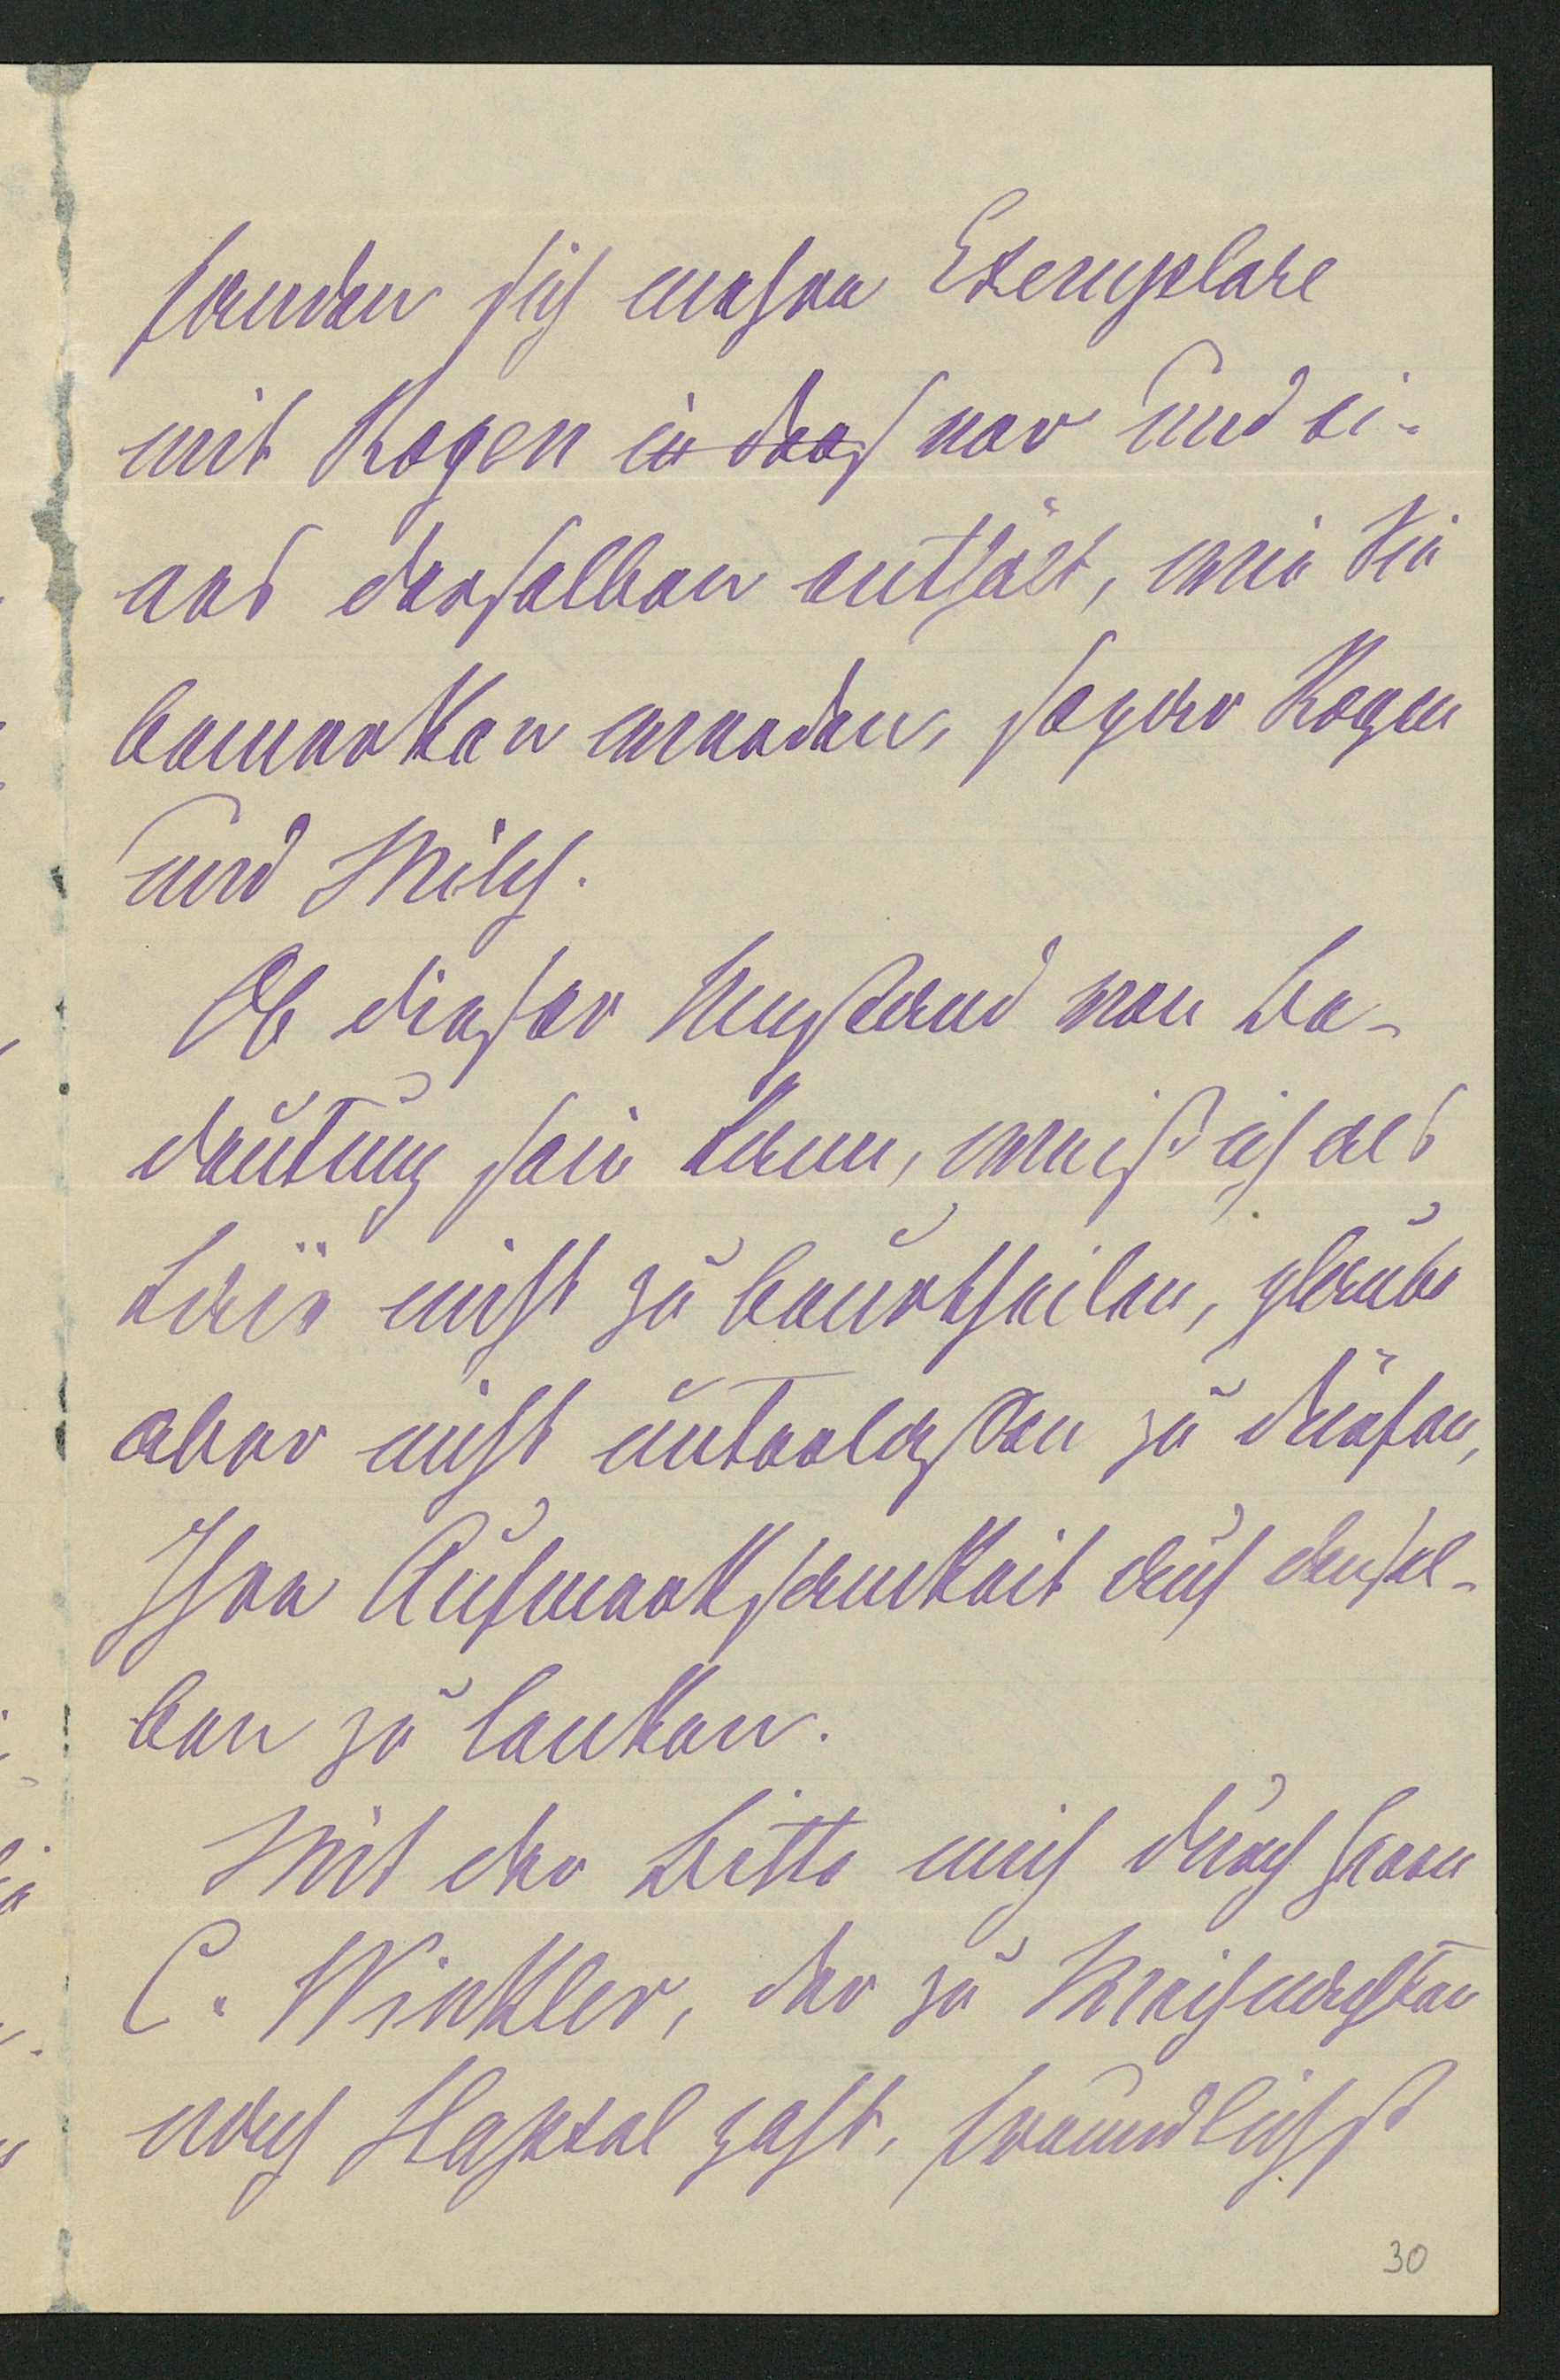 fanden sich mehre Exemplare
mit Rogen in der vor und ei-
nes derselben enthält, wie Sie
bemerken werden, sogar Rogen
und Milch.
Ob dieser Umstand von Be-
deutung sein kann, weiß ich als
Laie nicht zu beurtheilen, glaube
aber nicht unterlassen zu dürfen,
Ihre Aufmerksamkeit auf densel-
ben zu lenken.
Mit der Bitte mich durch Herrn
C. Winkler, der zu Weihnachten
nach Hapsal geht, freundlichst
30